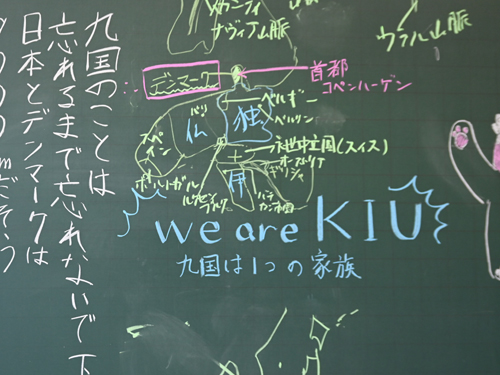 九国のことは
忘れるまで忘れないで下
日本とデンマークは
ナヴィア山脈
ウラル山脈
デンマーク
首都
コペンハーゲン
ベルギー
ベルリン
パリ
仏
独
スペイン
永世中立国(スイス)
オーストリア
ポルトガル
ルクセンブルク
伊
バチカン市国
we are KIU
九国は1つの家族